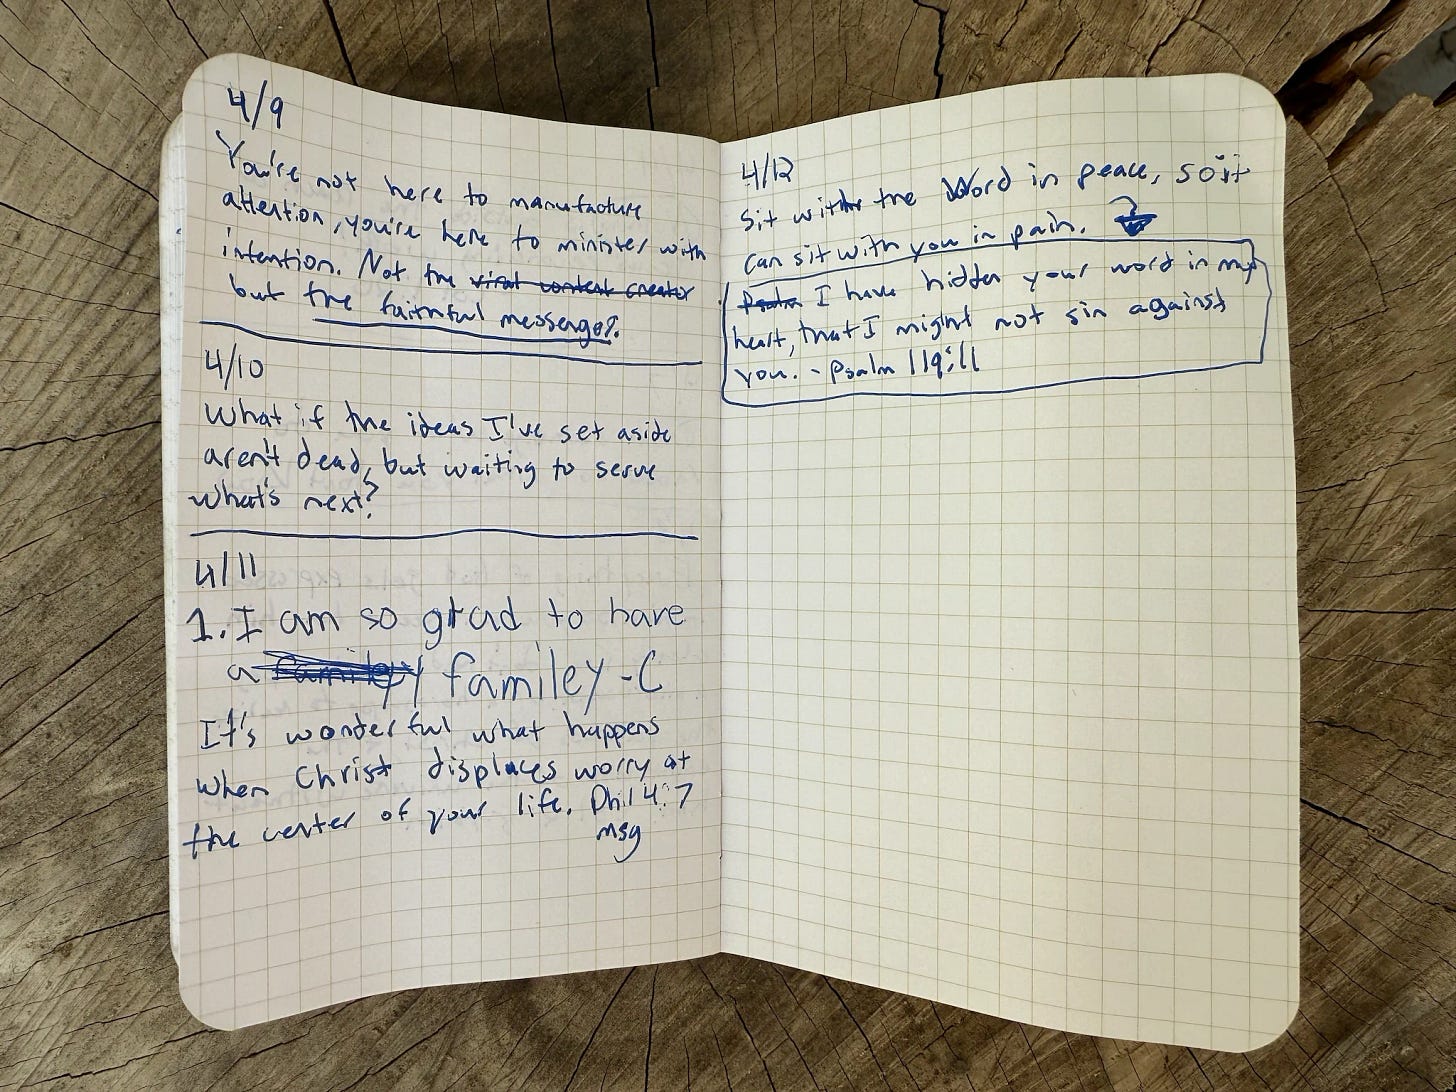 4/9
You're not here to manufacture
attention, you're here to minister with
intention. Not the viral content creator
but the faithful messenger.
4/10
What if the ideas I've set aside
aren't dead, but waiting to serve
what's next?
4/11
1. I am so glad to have
a familey familey -C
It's wonderful what happens
when Christ displaces worry at
the center of your life. Phil 4:7
msg
4/12
Sit with the Word in peace, so it
can sit with you in pain.
Psalm I have hidden your word in my
heart, that I might not sin against
you. - Psalm 119:11